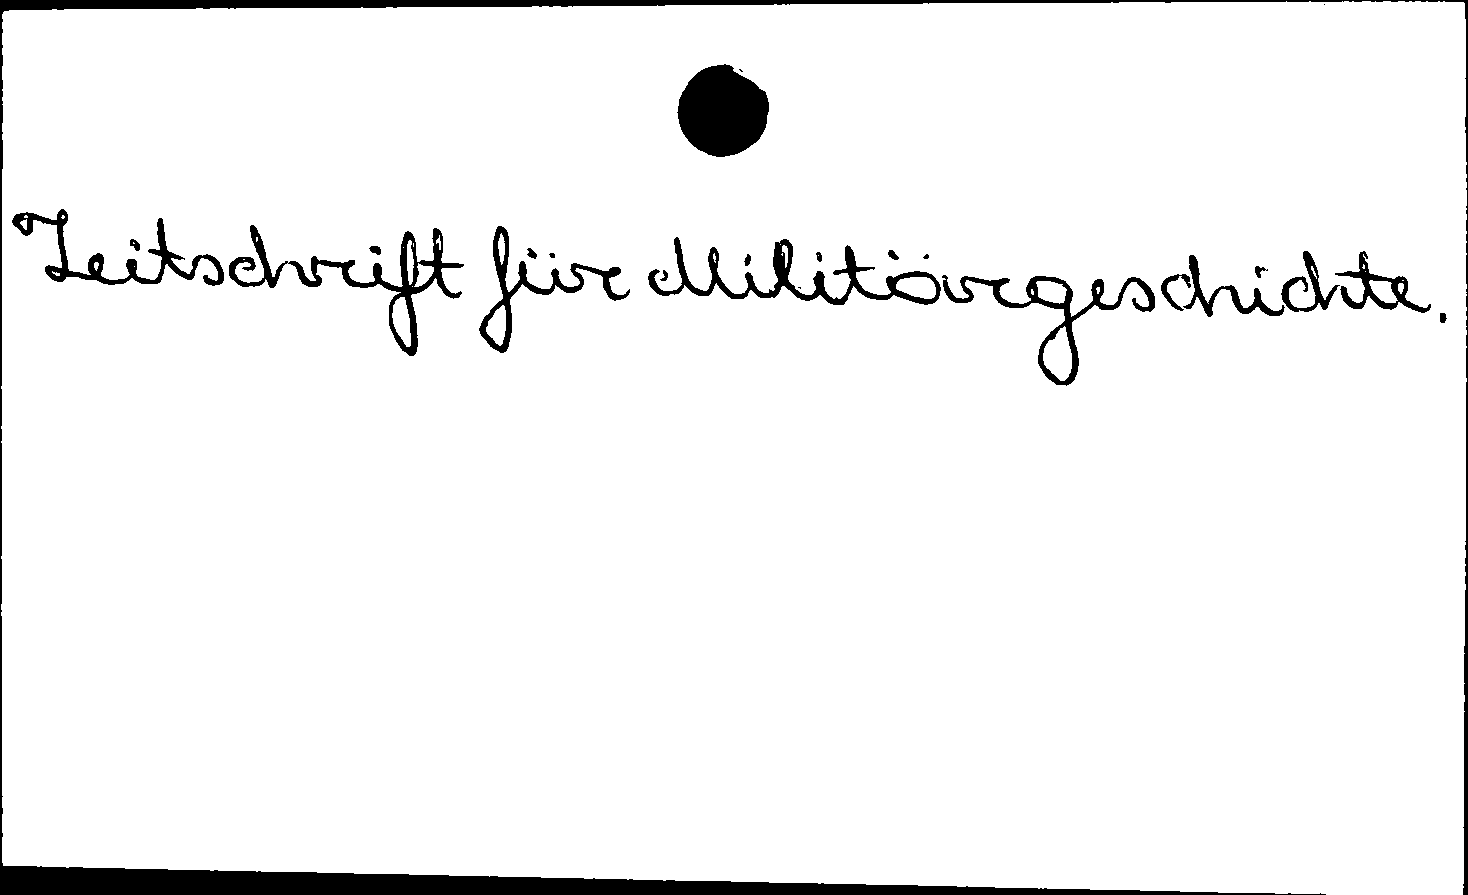 Zeitschrift für Militärgeschichte.